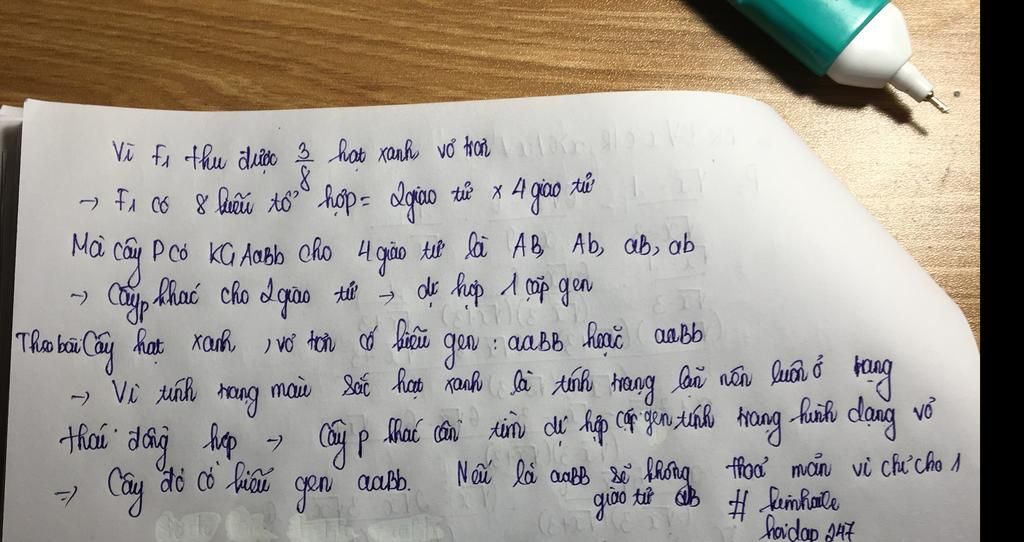 Vì F1 thu được 3/8 hạt xanh, vỏ trơn
→ F1 có 8 kiểu tổ hợp = 2 giao tử × 4 giao tử
Mà cây P có KG AaBb cho 4 giao tử là AB, Ab, aB, ab
→ Cây P khác cho 2 giao tử → dị hợp 1 cặp gen
Theo bài Cây hạt xanh, vỏ trơn có kiểu gen: aaBB hoặc aaBb
→ Vì tính trạng màu sắc hạt xanh là tính trạng lặn nên luôn ở trạng
thái đồng hợp → Cây P khác cần tìm dị hợp cặp gen tính trạng hình dạng vỏ
⇒ Cây đó có kiểu gen aaBb. Nếu là aaBB sẽ không thoả mãn vì chỉ cho 1
giao tử aB #
hoidap247